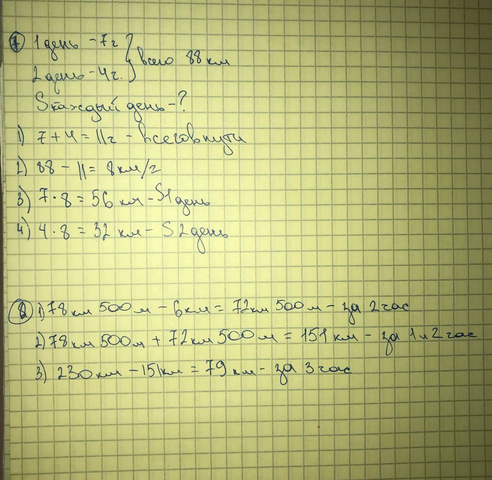 ① 1 день - 7 г
2 день - 4 г. } всего 88 км
S каждый день - ?
1) 7 + 4 = 11 г - всего в пути
2) 88 - 11 = 8 км/г
3) 7 · 8 = 56 км - S 1 день
4) 4 · 8 = 32 км - S 2 день
② 1) 78 км 500 м - 6 км = 72 км 500 м - за 2 час
2) 78 км 500 м + 72 км 500 м = 151 км - за 1 и 2 час
3) 230 км - 151 км = 79 км - за 3 час